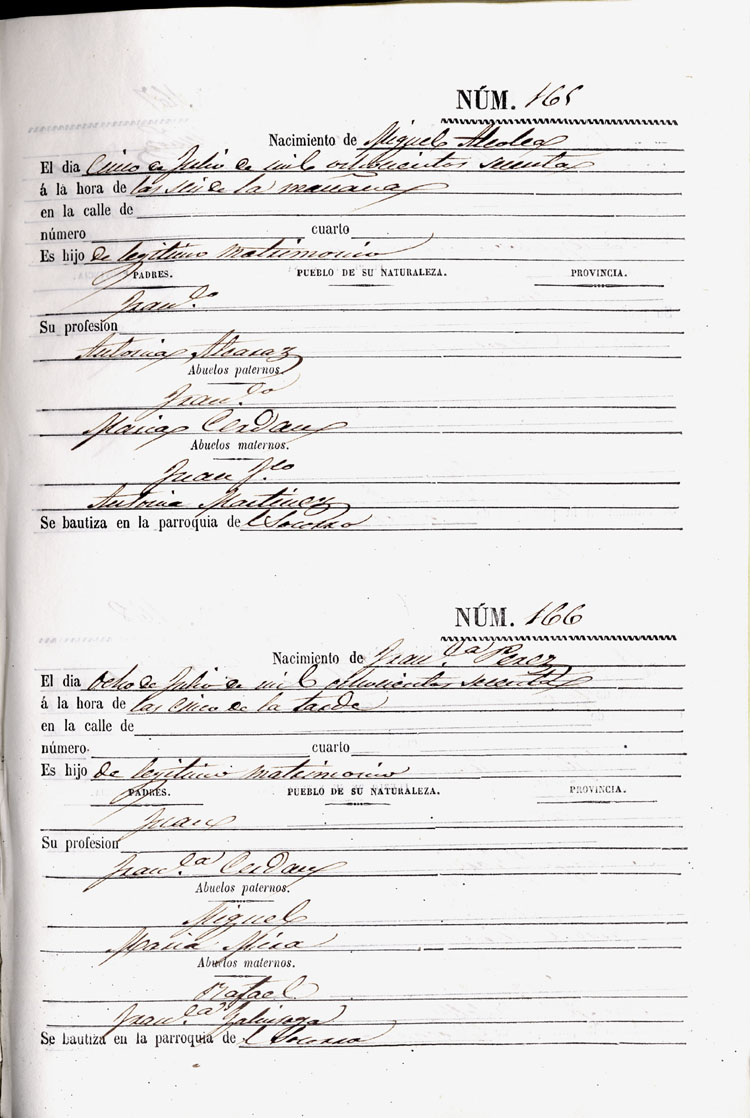 NÚM. 165
Nacimiento de Miguel Alcolea
El dia cinco de Julio de mil ochocientos secenta
á la hora de las seis de la mañana
en la calle de
número cuarto
Es hijo de legitimo matrimonio
PADRES. PUEBLO DE SU NATURALEZA. PROVINCIA.
Fran.co
Su profesion
Antonia Alcaraz
Abuelos paternos.
Fran.co
Maria Cerdan
Abuelos maternos.
Juan
Antonia Martinez
Se bautiza en la parroquia del Socorro
NÚM. 166
Nacimiento de Fran.ca Perez
El dia ocho de Julio de mil ochocientos secenta
á la hora de las cinco de la tarde
en la calle de
número cuarto
Es hijo de legitimo matrimonio
PADRES. PUEBLO DE SU NATURALEZA. PROVINCIA.
Juan
Su profesion
Fran.ca Cerdan
Abuelos paternos.
Miguel
Maria Mira
Abuelos maternos.
Rafael
Fran.ca
Se bautiza en la parroquia del Socorro